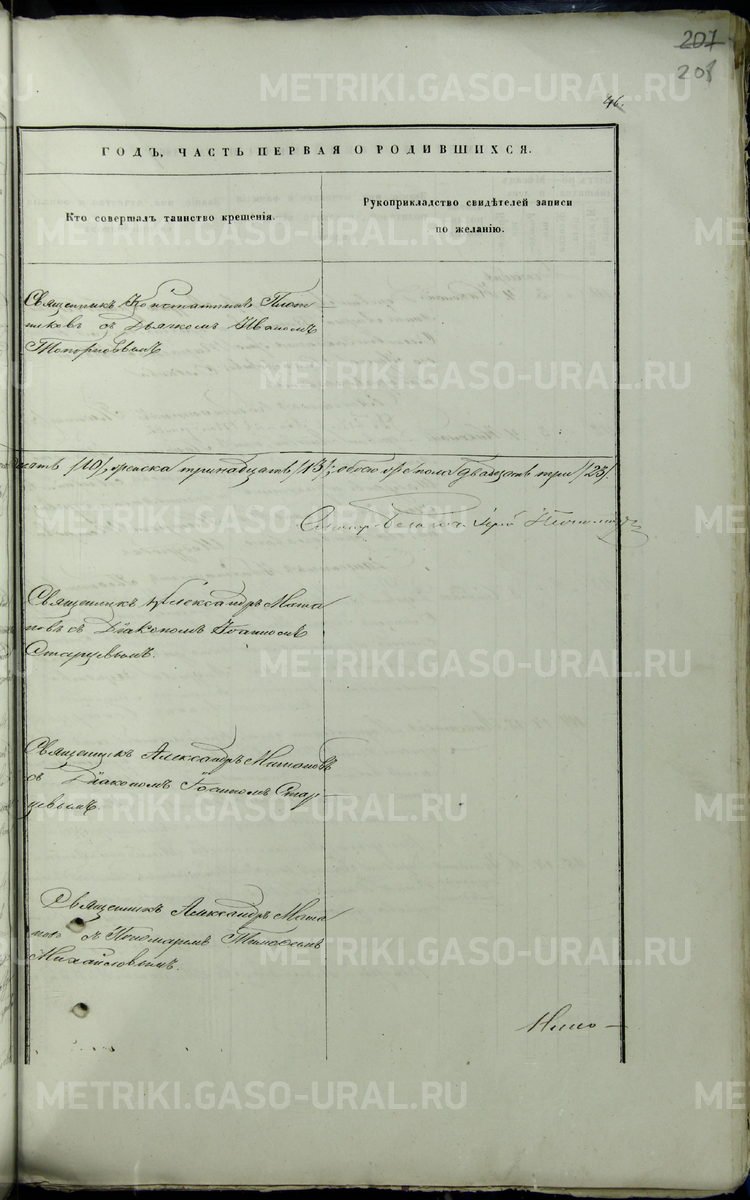 207
208
46.
ГОДЪ, ЧАСТЬ ПЕРВАЯ О РОДИВШИХСЯ.
Кто совершалъ таинство крещенія.
Рукоприкладство свидѣтелей записи
по желанію.
Священникъ Константинъ Плот
никовъ съ Дьячкомъ Иваномъ
десять /10/, женска тринадцать /13/; обоего пола двадцать три /23/.
Священникъ Александръ Мата
новъ съ Діакономъ Іоанномъ
Старцевымъ.
Священникъ Александръ Матановъ
съ Діакономъ Іоанномъ Стар
цевымъ.
Священникъ Александръ Мата
новъ съ Пономаремъ
Михайловымъ.
METRIKI.GASO-URAL.RU